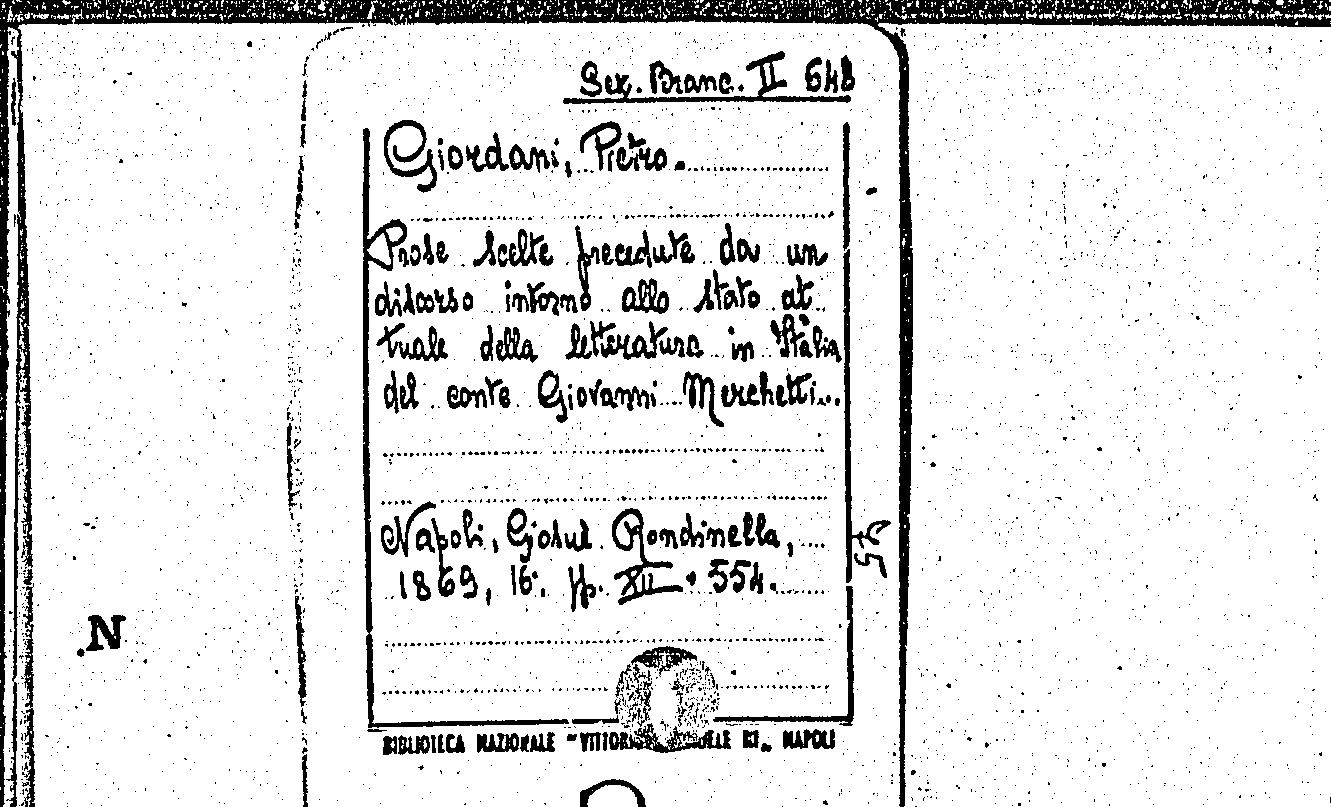 Sez. Branc. II 548
Giordani, Pietro.
Prose scelte precedute da un
discorso intorno allo stato at
tuale della letteratura in Italia
del conte Giovanni Merchetti...
Napoli, Giosuè Rondinella,
1869, 16°. pp. XII + 554.
.N
BIBLIOTECA NAZIONALE "VITTORIO ELE III" NAPOLI